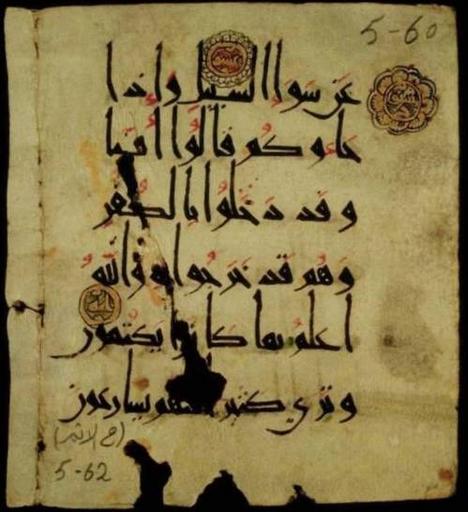 5-60
عَن سَوَا السبيل واذا
جاءوكُم قالُوا امَنا
وقَد دَخَلُوا بِالكُفرِ
وَهُم قَد خَرَجُوا به وَاللهُ
اعلَمُ بما كانوا يكتُمون
وترى كثيرا منهم يسارعون
(في الاثم)
5-62